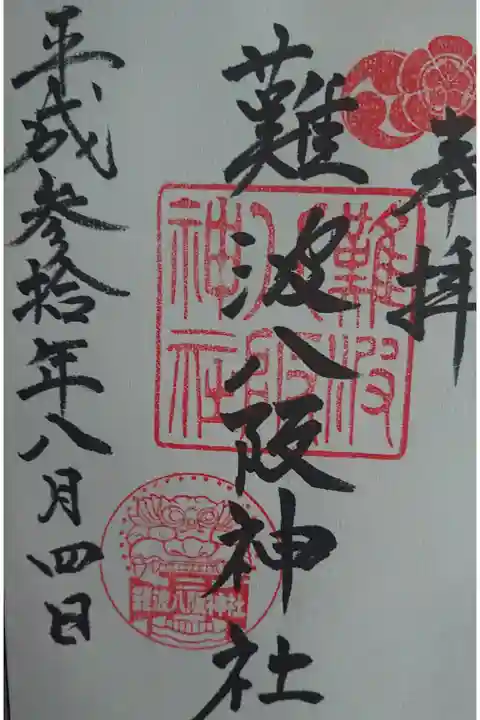 奉拝
難波八阪神社
難波
八阪
神社
難波八阪神社
平成参拾年八月四日